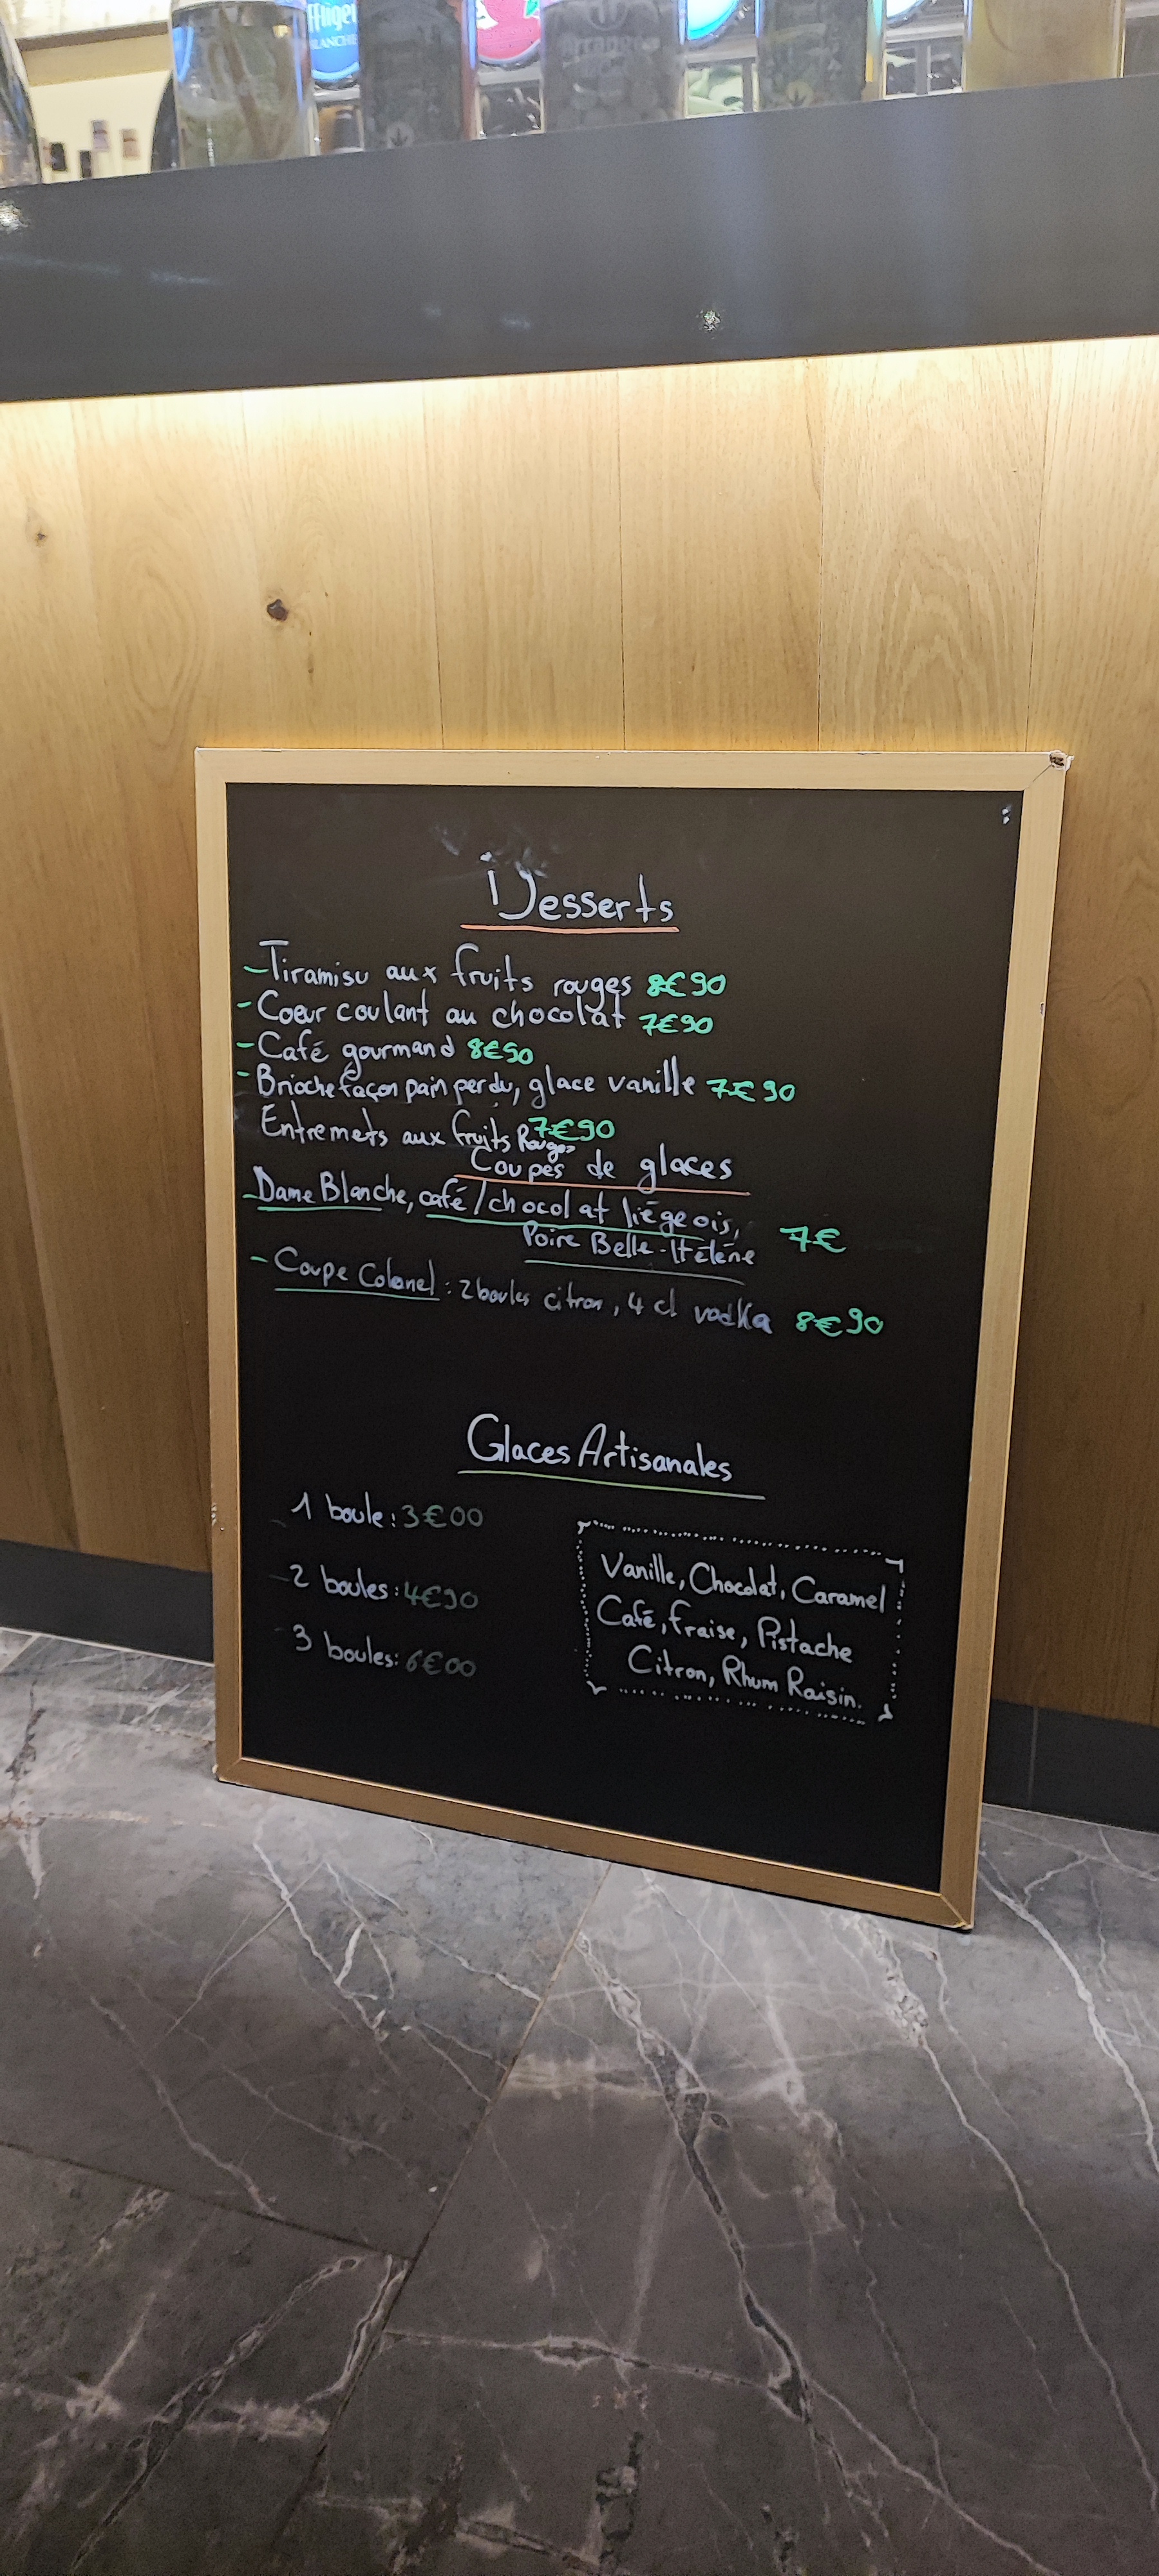 ffligem
BLANCHE
Arrangé
Desserts
- Tiramisu aux fruits rouges 8€90
- Coeur coulant au chocolat 7€90
- Café gourmand 8€90
- Brioche façon pain perdu, glace vanille 7€90
Entremets aux fruits Rouges 7€90
Coupes de glaces
- Dame Blanche, café/chocolat liégeois,
Poire Belle-Hélène 7€
- Coupe Colonel : 2 boules citron, 4 cl vodka 8€90
Glaces Artisanales
1 boule : 3€00
- 2 boules : 4€90
3 boules : 6€00
Vanille, Chocolat, Caramel
Café, Fraise, Pistache
Citron, Rhum Raisin.